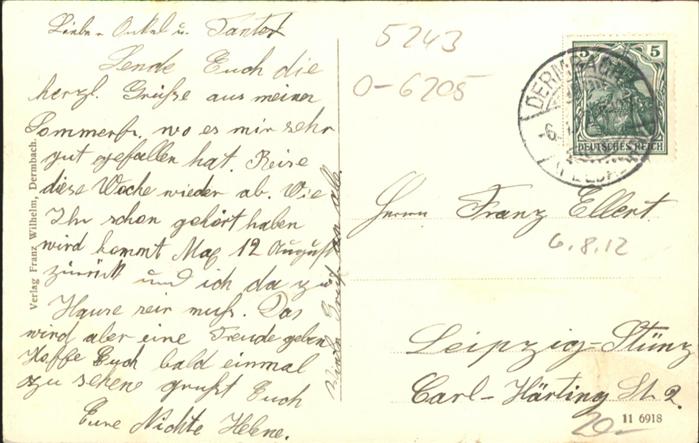 Liebe Onkel u. Tante!
Sende Euch die
herzl. Grüße aus meiner
Sommerfr. wo es mir sehr
gut gefallen hat. Reise
diese Woche wieder ab. Wie
Ihr schon gehört haben
wird kommt Max 12 August
zurück und ich da zu
Hause sein muß. Das
wird aber eine Freude geben
Hoffe Euch bald einmal
zu sehene grüßt Euch
Eure Nichte Helene.
an alle.
Verlag Franz Wilhelm, Dermbach.
5243
0-6205
5 5
DEUTSCHES REICH
DERMBACH
Herrn Franz Ellert
6.8.12
Leipzig-Stünz
Carl-Härting St. 2.
20-
11 6918